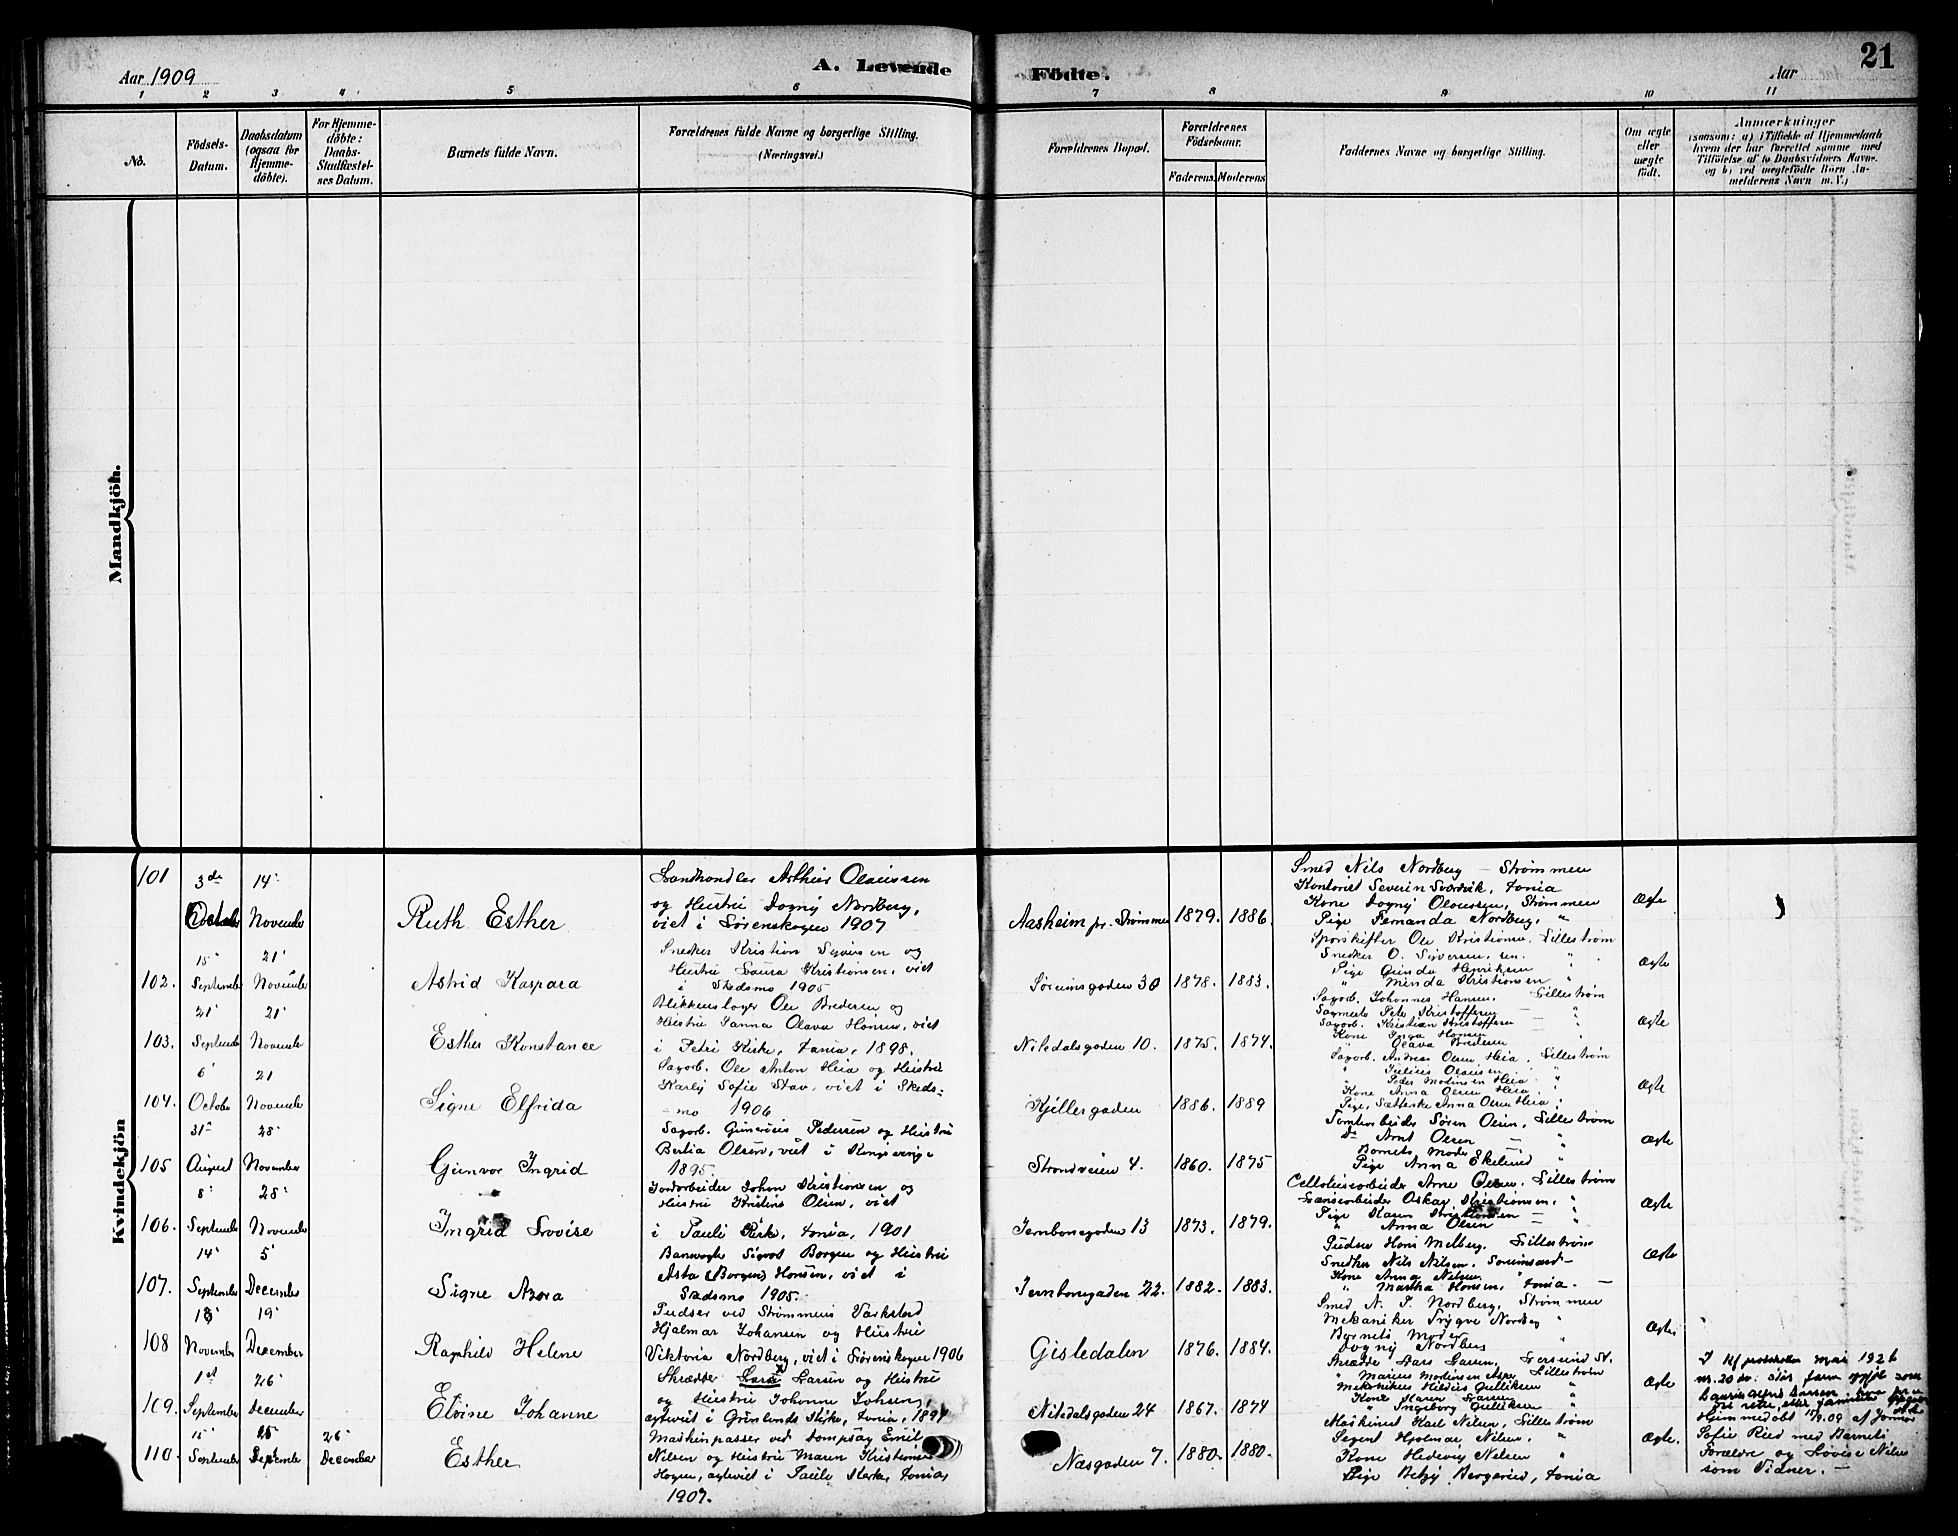 Aar 1909
A. Levende
Födte.
Aar
21
1 2 3 4 5 6 7 8 9 10 11
No.
Födsels-
Datum.
Daabsdatum
(ogsaa for
Hjemme-
döbte).
For Hjemme-
döbte:
Daabs-
Stadfæstel-
ses Datum.
Barnets fulde Navn.
Forældrenes fulde Navne og borgerlige Stilling.
(Næringsvei.)
Forældrenes Bopæl.
Forældrenes
Födselsaar.
Faderens. Moderens.
Faddernes Navne og borgerlige Stilling.
Om ægte
eller
uægte
födt.
Anmærkninger
(saasom: a) i Tilfælde af Hjemmedaab
hvem der har forrettet samme med
Tilföielse af to Daabsvidners Navne.
og b) ved uægtefödte Börn An-
melderens Navn m. V.)
Mandkjön.
Kvindekjön
101
3de October
14 November
Ruth Esther
Landhandler Arthur Olaussen
og Hustru Dagny Nordberg,
viet i Sörenskogen 1907
Aasheim pr. Strømmen
1879. 1886.
Smed Nils Nordberg - Strømmen
Kontorist Severin
Kone Dagny Olaussen, Strømmen
Pige Fernanda Nordberg, "
Ægte
102.
15 September
21 November
Astrid Kaspara
Snedker Kristian Syversen og
Hustru Laura Kristiansen, viet
i Skedsmo 1905
Sørumsgaden 30
1878. 1883.
Sporskifter Ole Kristiansen, Lillestrøm
Snedker O. Syversen, sen. "
Pige Gunda Henriksen
" Minda Kristiansen "
Ægte
103.
21 September
21 November
Esther Konstance
Blikkenslager Ole Bredesen og
Hustru Janna Olava Hansen, viet
i Petri Kirke, 1898.
Nitedalsgaden 10.
1875. 1874.
Sagarb. Johannes Hansen, Lillestrøm
Sagmester Peter Kristoffersen - "
Sagarb. Kristian Kristoffersen - "
Kone Inga Hansen
" Olava Bredesen
Ægte
104.
6 October
21 November
Signe Elfrida
Sagarb. Ole Anton Heia og Hustru
Karly Sofie Stav, viet i Skeds-
mo 1906
Kjellergaden
1886. 1889
Sagarb. Andreas Olsen Heia, Lillestrøm
" Julius Olausen "
" Peder Madinsen Heia "
Kone Anna Olsen Heia "
Pige, Anna Olsen Heia "
Ægte
105
31 August
28 November
Gunvor Ingrid
Sagarb. Gunerius Pedersen og Hustru
Bertia Olsen, viet i Kongsvinger
1895.
Strandveien 4.
1860. 1875
Tomtearbeider Søren Olsen, Lillestrøm
do Arnt Olsen - "
Barnets Moder "
Pige Anna Ekelund "
Ægte
106.
8 September
28 November
Ingrid Lovise
Jordarbeider Johan Kristiansen og
Hustru Kristine Olsen, viet
i Pauli Kirke, 1901
Jernbanegaden 13
1873. 1879.
Cellulosearbeider Arne Olsen, Lillestrøm
Lænsearbeider Oskar Kristiansen, "
Pige Karen Kristiansen - "
" Anna Olsen - "
Ægte
107.
14 September
5 December
Signe Asora
Banvogter Sigvat Borgen og Hustru
Asta (Borgen) Hansen, viet i
Skedsmo 1905.
Jernbanegaden 22.
1882. 1883.
Pudser Hans Melberg, Lillestrøm
Snedker Nils Nilsen,
Kone Anna Nilsen, "
" Martha Hansen,
Ægte
108
18 November
19 December
Ragnhild Helene
Pudser ved Strømmens Værksted
Hjalmar Johansen og Hustru
Viktoria Nordberg, viet i Lørenskogen 1906
Gisledalen
1876. 1884.
Smed N. J. Nordberg, Strømmen
Mekaniker Trygve Nordberg "
Barnets Moder
Dagny Nordberg "
Ægte
109.
1st September
26 December
Elvine Johanne
Skrædder Lars Larsen og Hustru
og Hustru Johanne Johansen,
agteviet i Grønlands Kirke, 1897
Nitedalsgaden 24
1867. 1874
Skrædder Lars Larsen,
" Marius Madinsen Asper Lillestrøm
Mekanikus Hildus Gulliksen "
Kone Maren Larsen "
" Ingeborg Gulliksen "
Ægte
I mai 1926
nr. 20
110.
15 September
25
26 December
Esther
Maskinpasser ved Dampsag Emil
Nilsen og Hustru Maren Kristiansen
Hagen, agteviet i Pauli Kirke,
1907.
Næsgaden 7.
1880. 1880.
Maskinist Karl Nilsen, Lillestrøm
Agent Hjalmar Nilsen, "
Kone Hedevig Nilsen "
Pige Betzy
Ægte.
Hjemmedøbt 17/9.09 af Jormor
Sofie Ried med Barnets
Forældre og Lovise Nilsen
som Vidner. -